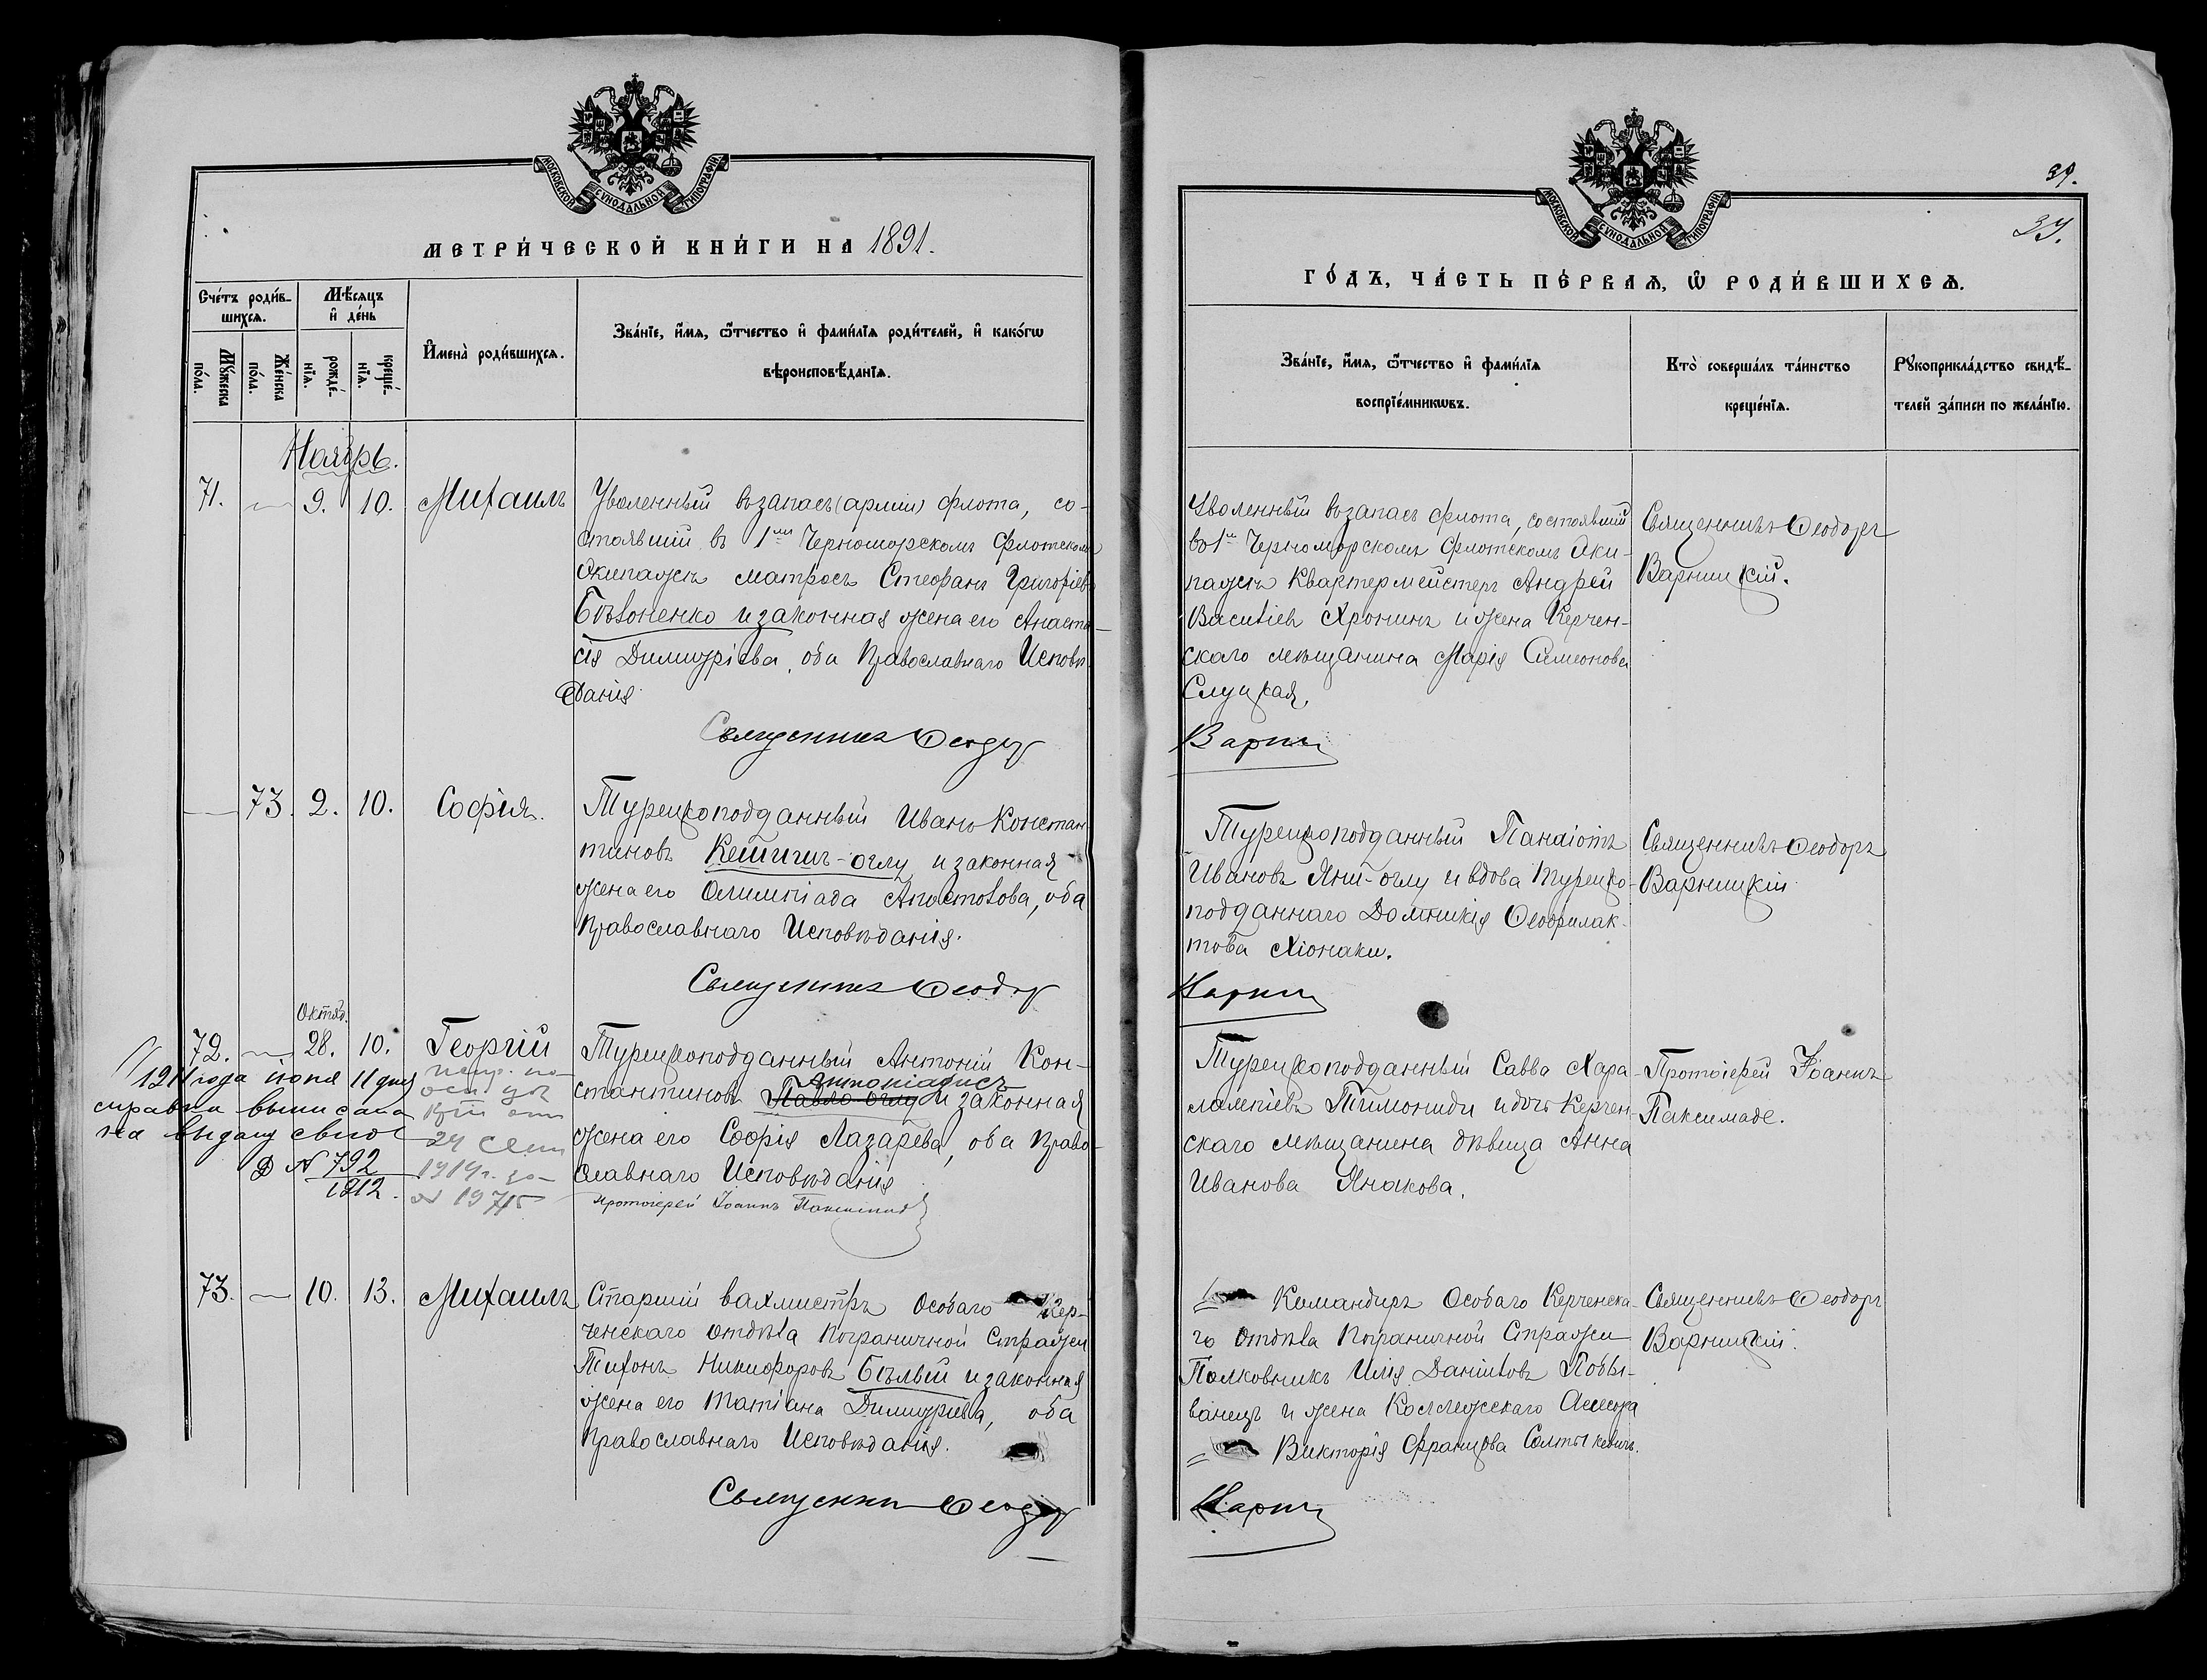 МОСКОВСКОЙ СѴНОДАЛЬНОЙ ТИПОГРАФІИ
МЕТРИ́ЧЕСКОЙ КНИ́ГИ НА 1891.
Сче́тъ роди́в-
шихсѧ.
Мѣ́сѧцъ
и҆ де́нь
Мꙋ́жеска
по́ла.
Же́нска
по́ла.
рожде́-
нїѧ.
креще́-
нїѧ.
И҆мена̀ роди́вшихсѧ.
Зва́нїе, и҆́мѧ, ѻ҆́тчество и҆ фами́лїѧ роди́телей, и҆ како́гѡ
вѣроисповѣ́данїѧ.
Ноябрь.
71. — 9. 10. Михаилъ
Уволенный въ запасъ (арміи) флота, со-
стоявшій въ 1мъ Черноморскомъ флотскомъ
Экипажѣ матросъ Стефанъ Григоріевъ
Бѣлоненко и законная жена его Анаста-
сія Димитріева, оба Православнаго Исповѣ-
данія.
Священникъ Ѳеодоръ
— 73. 2. 10. Софія.
Турецкоподданный Иванъ Констан-
тиновъ Кешишъ-оглу и законная
жена его Олимпіада Апостолова, оба
Православнаго Исповѣданія.
Священникъ Ѳеодоръ
Октяб.
72. — 28. 10. Георгій
Турецкоподданный Антоній Кон-
стантиновъ Павло-оглу и законная
Антоніадисъ
жена его Софія Лазарева, оба Право-
славнаго Исповѣданія
Протоіерей Іоаннъ Паксимад
1911 года іюня 11 дня
справка выписана
на выдачу свид
№ 792
1912.
24 Сен
1914 г. за
№ 19715
73. — 10. 13. Михаилъ
Старшій вахмистръ Особаго Кер-
ченскаго отдѣла Пограничной Стражи
Тихонъ Никифоровъ Бѣлый и законная
жена его Татіана Димитріева, оба
Православнаго Исповѣданія.
Священникъ Ѳеодоръ
39.
39.
МОСКОВСКОЙ СѴНОДАЛЬНОЙ ТИПОГРАФІИ
ГО́ДЪ, ЧА́СТЬ ПЕ́РВАѦ, Ѡ҆ РОДИ́ВШИХСѦ.
Зва́нїе, и҆́мѧ, ѻ҆́тчество и҆ фами́лїѧ
воспрїе́мникѡвъ.
Кто̀ соверша́лъ та́инство
креще́нїѧ.
Рꙋкоприкла́дство свидѣ́-
телей за́писи по жела́нїю.
Уволенный въ запасъ флота, состоявшій
въ 1мъ Черноморскомъ флотскомъ Эки-
пажѣ Квартермейстеръ Андрей
Василіев Хронинъ и жена Керчен-
скаго мѣщанина Марія Симеонова
Слуцкая.
Варниц
Священникъ Ѳеодоръ
Варницкій.
Турецкоподданный Панаіотъ
Ивановъ Яни-оглу и вдова Турецко-
подданнаго Домникія Ѳеофилак-
това Хіонаки.
Варниц
Священникъ Ѳеодоръ
Варницкій
Турецкоподданный Савва Хара-
лампіевъ Тимониди и дочь Керчен-
скаго мѣщанина дѣвица Анна
Иванова Янакова.
Протоіерей Іоаннъ
Паксимаде.
Командиръ Особаго Керченска-
го отдѣла Пограничной Стражи
Полковникъ Илія Даніиловъ Побы-
ванецъ и жена Коллежскаго Асесора
Викторія Францова Солтыкевичъ.
Варниц
Священникъ Ѳеодоръ
Варницкій.